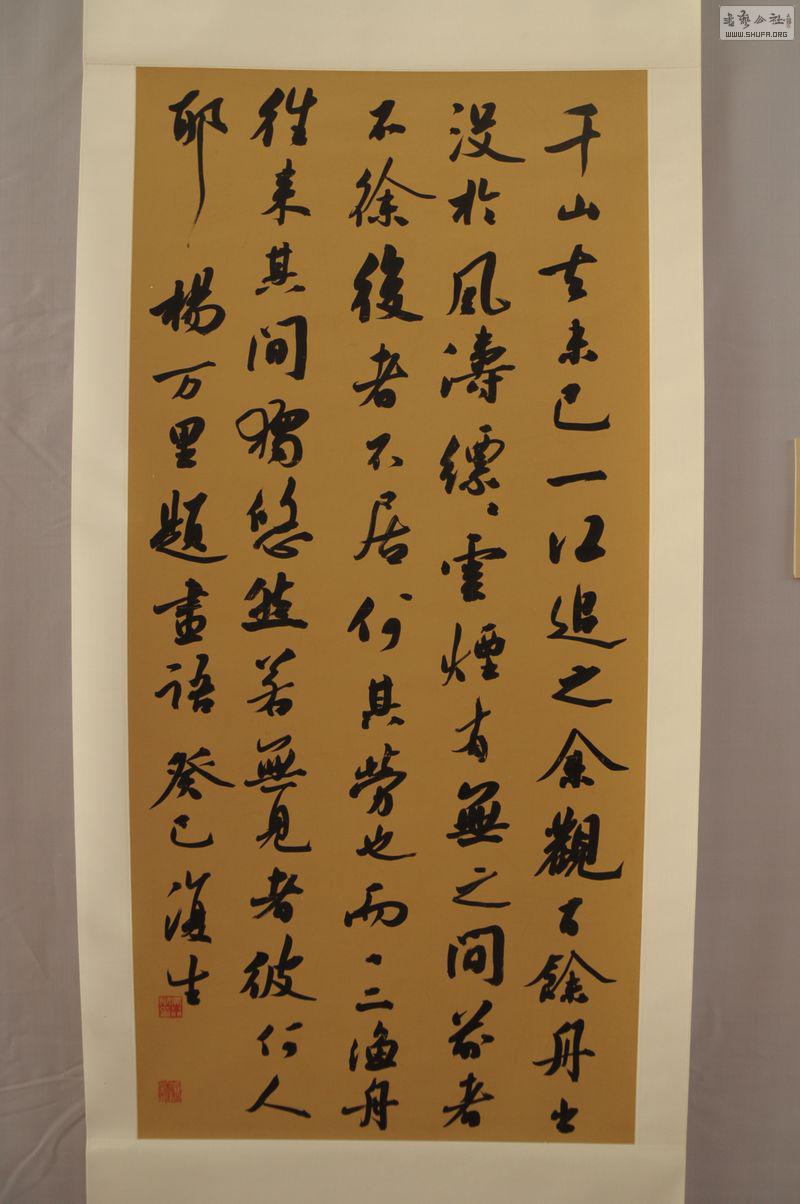 千山去未已一江追之余觀百餘舟出
没於風濤縹缈雲煙有無之間前者
不徐後者不居何其勞也而一二漁舟
往来其間獨悠然若無見者彼何人
耶 楊万里題畫語 癸巳 海生
書藝公社
WWW.SHUFA.ORG